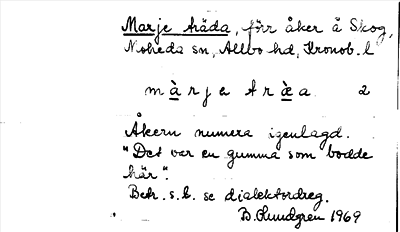 Marje träda, förr åker å Skog,
Moheda sn, Allbo hd, Kronob. l
m à r j e t r æ̀ a 2
Åkern numera igenlagd.
"Det var en gumma som bodde
här".
Betr. s.k. se dialektordreg.
B. Lundgren 1969